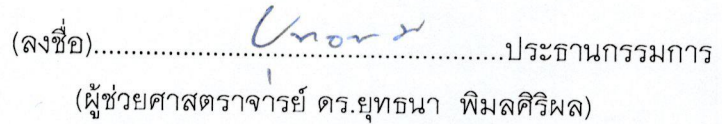 (ลงชื่อ)......................................................ประธานกรรมการ
(ผู้ช่วยศาสตราจารย์ ดร.ยุทธนา พิมลศิริผล)